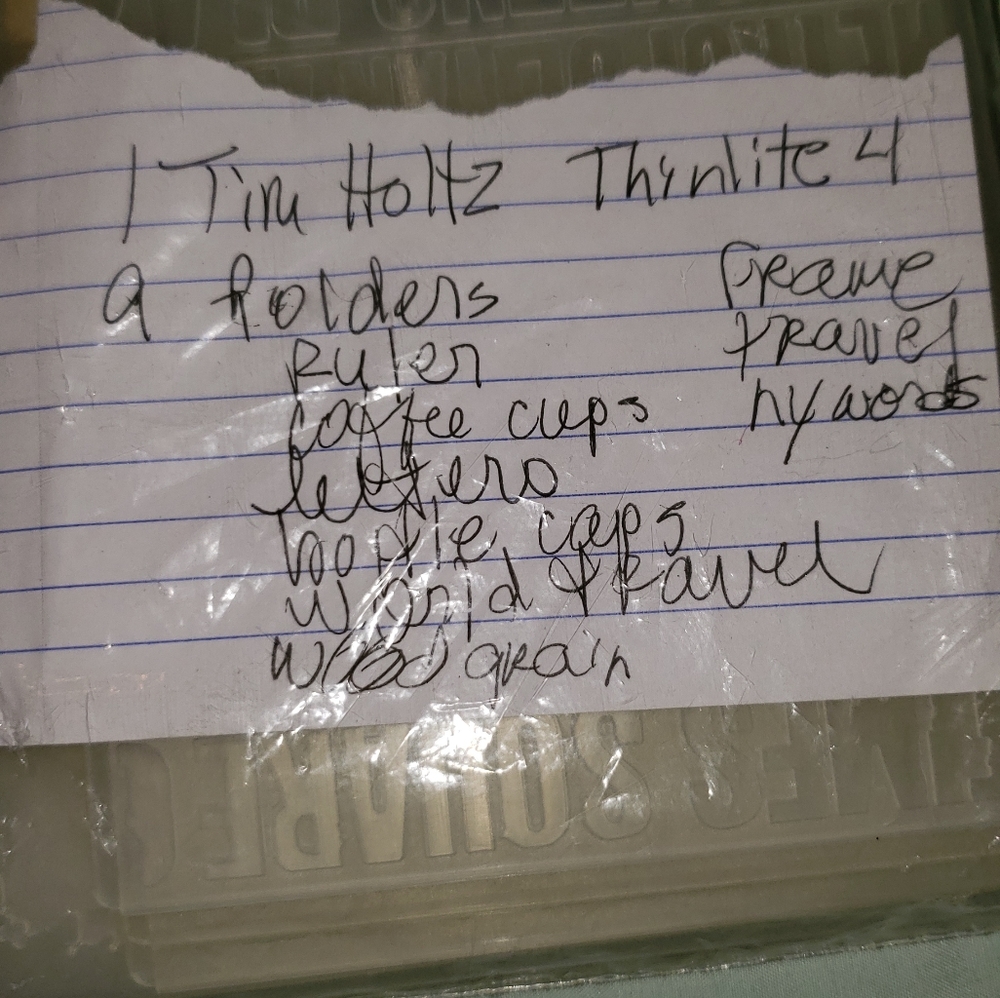 1 Tim Holtz Thinlite 4
9 folders
ruler
coffee cups
letters
bottle caps
world travel
wood grain
frame
travel
ny words
SQUARE